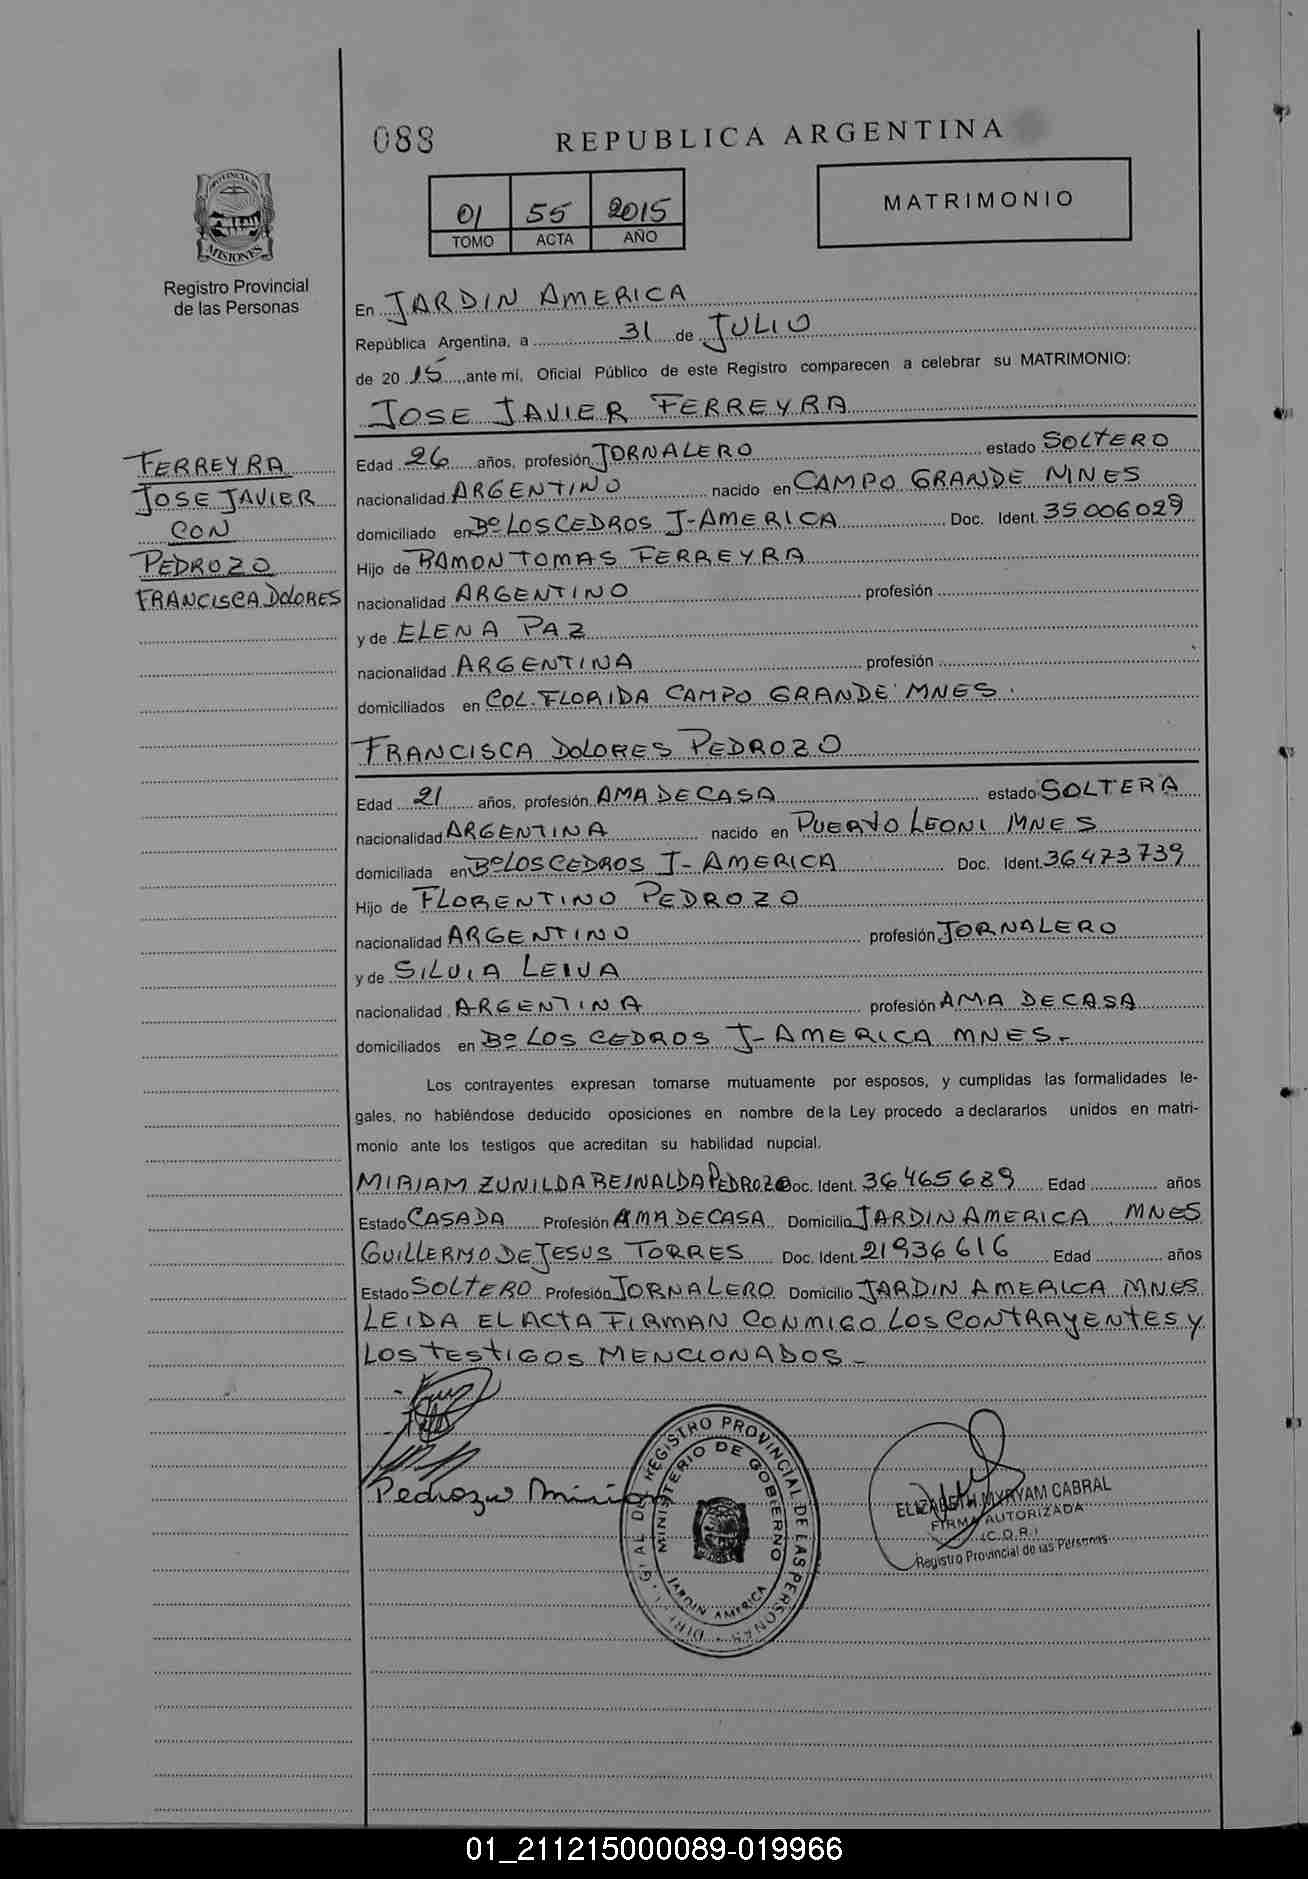 088
REPUBLICA ARGENTINA
PROVINCIA DE
MISIONES
Registro Provincial
de las Personas
01 55 2015
TOMO ACTA AÑO
MATRIMONIO
En JARDIN AMERICA
República Argentina, a 31 de JULIO
de 2015, ante mí, Oficial Público de este Registro comparecen a celebrar su MATRIMONIO:
JOSE JAVIER FERREYRA
FERREYRA
JOSE JAVIER
CON
PEDROZO
FRANCISCA DOLORES
Edad 26 años, profesión JORNALERO estado SOLTERO
nacionalidad ARGENTINO nacido en CAMPO GRANDE MNES
domiciliado en Bº LOS CEDROS J-AMERICA Doc. Ident. 35006029
Hijo de RAMON TOMAS FERREYRA
nacionalidad ARGENTINO profesión
y de ELENA PAZ
nacionalidad ARGENTINA profesión
domiciliados en COL. FLORIDA CAMPO GRANDE MNES.
FRANCISCA DOLORES PEDROZO
Edad 21 años, profesión AMA DE CASA estado SOLTERA
nacionalidad ARGENTINA nacido en PUERTO LEONI MNES
domiciliada en Bº LOS CEDROS J-AMERICA Doc. Ident. 36473739
Hijo de FLORENTINO PEDROZO
nacionalidad ARGENTINO profesión JORNALERO
y de SILVIA LEIVA
nacionalidad ARGENTINA profesión AMA DE CASA
domiciliados en Bº LOS CEDROS J-AMERICA MNES.-
Los contrayentes expresan tomarse mutuamente por esposos, y cumplidas las formalidades le-
gales, no habiéndose deducido oposiciones en nombre de la Ley procedo a declararlos unidos en matri-
monio ante los testigos que acreditan su habilidad nupcial.
MIRIAM ZUNILDA REINALDA PEDROZO Doc. Ident. 36465689 Edad años
Estado CASADA Profesión AMA DE CASA Domicilio JARDIN AMERICA MNES
GUILLERMO DE JESUS TORRES Doc. Ident. 21936616 Edad años
Estado SOLTERO Profesión JORNALERO Domicilio JARDIN AMERICA MNES
LEIDA EL ACTA FIRMAN CONMIGO LOS CONTRAYENTES Y
LOS TESTIGOS MENCIONADOS-
Pedrozo Miriam
REGISTRO PROVINCIAL DE LAS PERSONES
MINISTERIO DE GOBIERNO
JARDIN AMERICA
ELIZABETH MYRYAM CABRAL
FIRMA AUTORIZADA
(C.D.R.)
Registro Provincial de las Personas
01_211215000089-019966